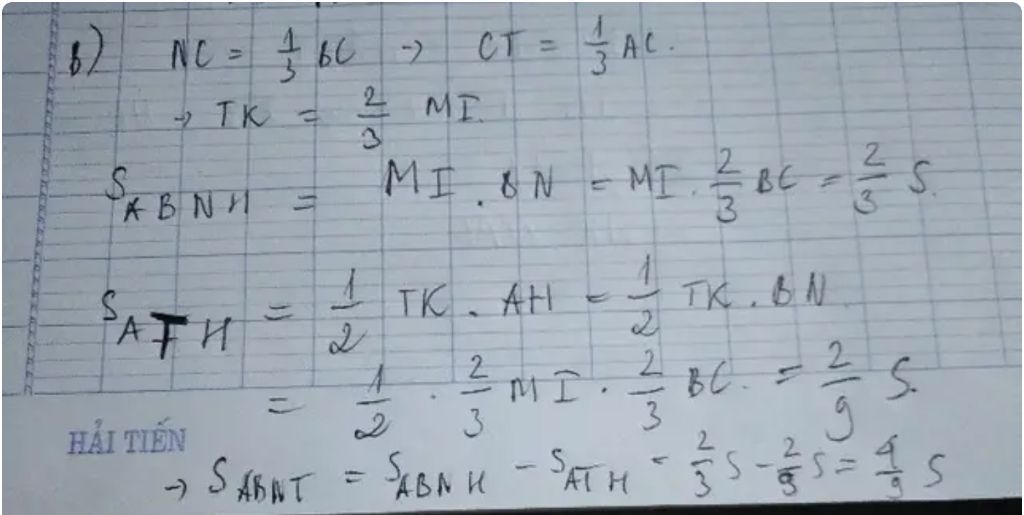 b) NC = 1/3 BC → CT = 1/3 AC.
→ TK = 2/3 MI.
S_ABNH = MI . BN = MI . 2/3 BC = 2/3 S.
S_ATH = 1/2 TK . AH = 1/2 TK . BN
= 1/2 . 2/3 MI . 2/3 BC. = 2/9 S.
HẢI TIẾN
→ S_ABNT = S_ABNH - S_ATH = 2/3 S - 2/9 S = 4/9 S